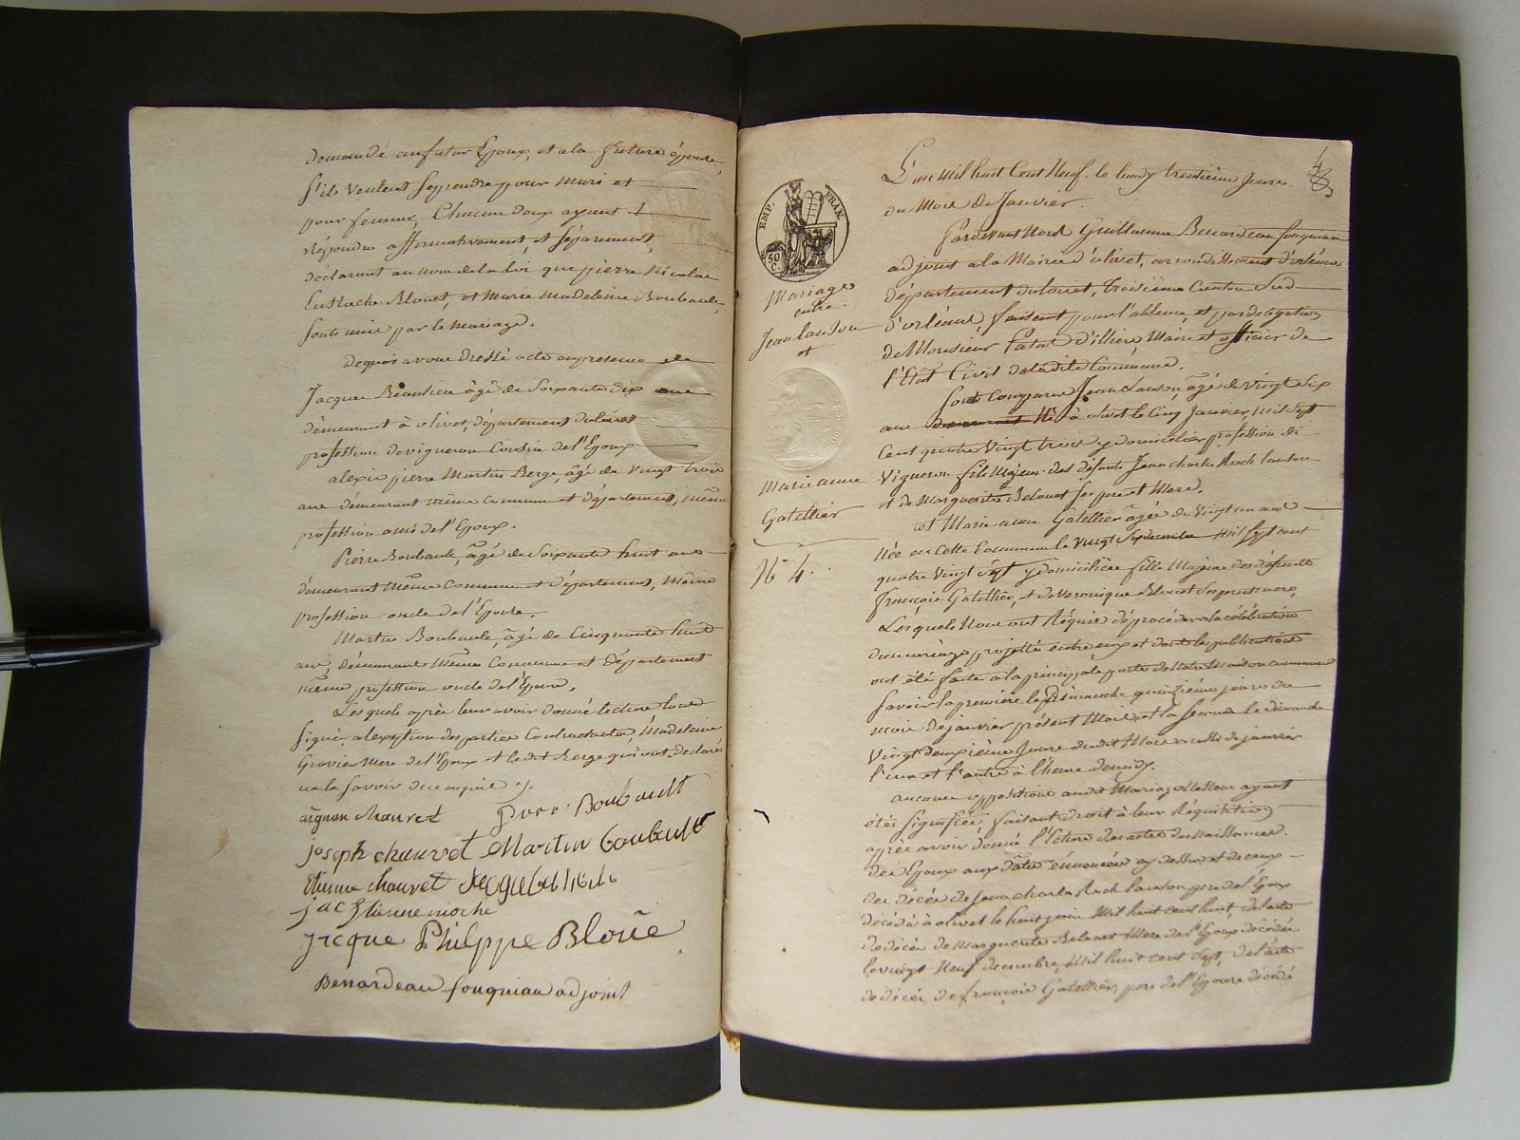 Demandé au futur Epoux, et a la future épouse,
s'ils veulent se prendre pour mari et
pour femme, Chacun deux ayant
Répondu affirmativement, et séparément,
déclarent au nom de la Loi que pierre Nicolas
Eustache Blouet, et Marie Madeleine Boubault,
sont unis par le mariage.
dequoi avons Dressé acte en presence de
Jacques Beaulieu âgé de Soixante dix ans
demeurant à olivet, département du loiret
profession de vigneron Cousin de l'Epoux
alexis pierre Martin Berge, âgé de vingt trois
ans demeurant même commune et département, même
profession ami de l'Epoux.
Pierre Boubault, âgé de Soixante huit ans
demeurant Même Commune et département, Même
profession oncle de l'Epouse.
Martin Boubault, âgé de Cinquante huit
ans, demeurant Même Commune et Département
même profession oncle de l'Epouse.
Lesquels après leur avoir donné lecture l'ont
Signé, a l'exeption des parties Contractantes, Madeleine
Mere de l'Epoux et ledit Berge qui ont déclarés
ne le savoir de ce enquis
aignan chauvet pierre Boubault
joseph chauvet Martin boubault
Etienne chauvet
jac Etienne rioche
jacque Philppe Blouë
Benardeau fouqueau adjoint
L'an Mil huit Cent Neuf. le lundy trentieme Jour
du Mois de Janvier.
Pardevant Nous Guillaume Benardeau fouqueau
adjoint a la Mairie d'olivet, arrondissement d'orléans
Département du loiret, troisieme Canton Sud
d'orléans faisant pour l'absence, et par délégation
de Monsieur Patas D'illiers, Maire et officier de
l'Etat Civil de la dite Commune.
Sont Comparus Jean Lanson, âgé de vingt six
ans Né à olivet le Cinq Janvier, mil sept
Cent quatre vingt trois y domicilié, profession de
Vigneron fils Majeur des défunts Jean charles Roch lanson
et de Marguerite Belouet ses pere et Mere.
et Marie anne Gatellier âgée de Vingt un ans
Née en cette Commune le vingt Septembre Mil Sept cent
quatre Vingt Sept y domiciliée fille Majeure des défunts
françois Gatellier, et de Veronique Blouet ses pere et mere,
Lesquels Nous ont Réquis de procéder a la célébration
du mariage projetté entre eux et dont les publications
ont été faites a la principale porte de Notre Maison commune
savoir la premiere le Dimanche quinzieme jour du
mois de janvier présent Mois, et la seconde le dimanche
Vingt deuxieme Jour dudit Mois de janvier
l'une et l'autre à l'heure de midy.
aucune opposition audit Mariage Ne Nous ayant
étés signifiée, faisant droit à leur Réquisition
après avoir donné lecture des actes de Naissances
des Epoux aux dates énoncées cy dessus et de ceux
de décés de Jean charles Roch lanson pere de l'Epoux
décédé à olivet le huit juin Mil huit cent huit, de l'acte
de décés de Marguerite Belouet Mere de l'Epoux décédée
le vingt Neuf decembre, Mil huit cent Sept, de l'acte
de décés de françois Gatellier, pere de l'Epouse décédé
EMP. FRAN.
50 C.
Mariage
entre
Jean Lanson
et
Marie anne
Gatellier
N° 4.